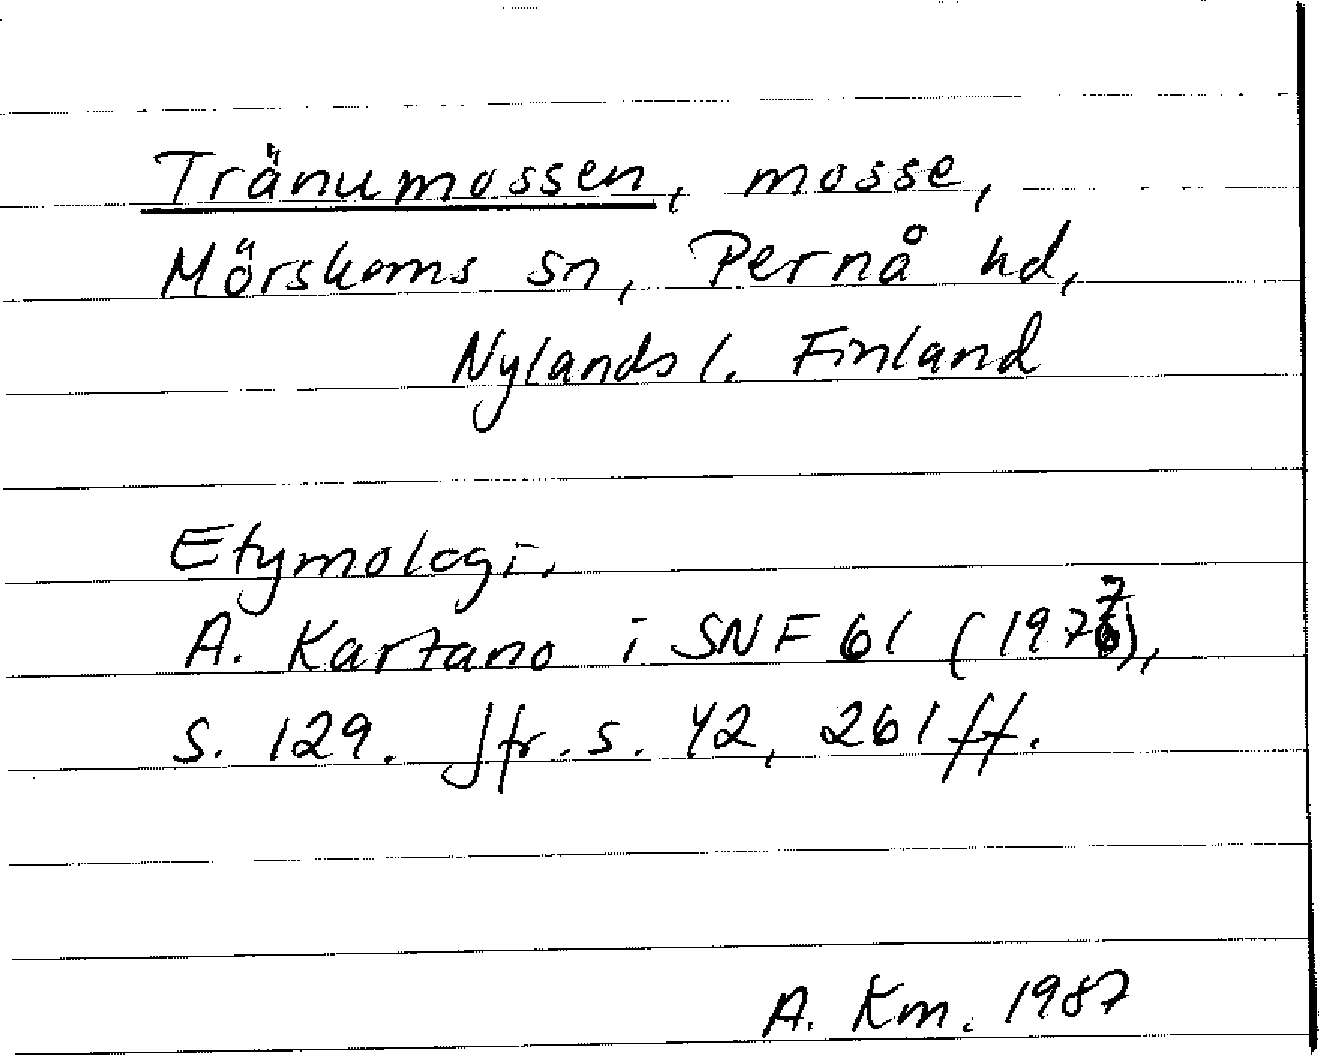 Tränumossen, mosse,
Mörskoms sn, Pernå hd,
Nylands l. Finland
Etymologi.
A. Kartano i SNF 61 (1977),
s. 129. Jfr. s. 42, 261 ff.
A. Km. 1987